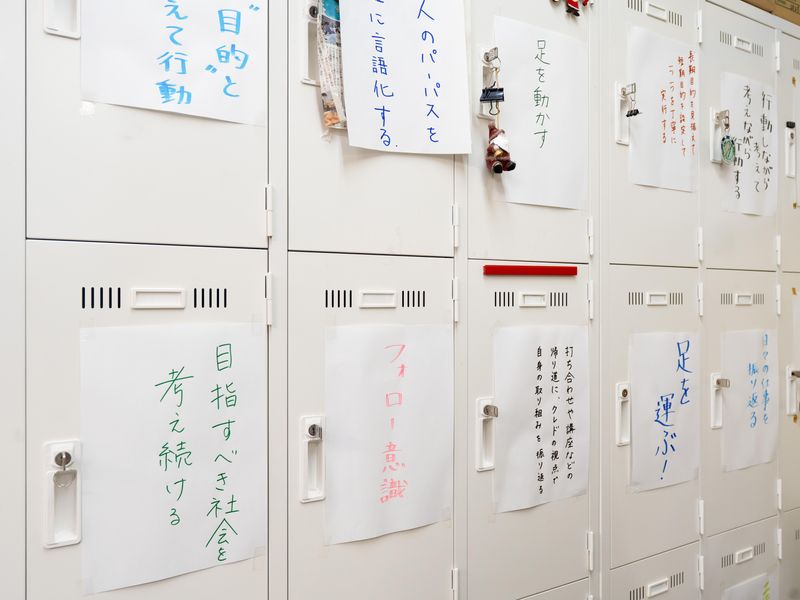 “目的と”
えて行動
人のパーパスを
に言語化する.
足を動かす
長期目的を見据えて
短期目的を設定して
一つ一つを丁寧に
実行する
行動しながら
考えて
考えながら
行動する
目指すべき社会を
考え続ける
フォロー意識
打ち合わせや講座などの
帰り道に、クレドの視点で
自身の取り組みを振り返る
足を
運ぶ!
日々の仕事を
振り返る